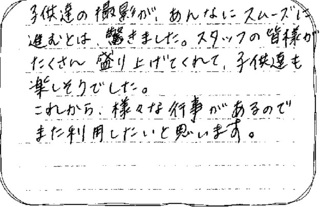 子供達の撮影が、あんなにスムーズに
進むとは驚きました。スタッフの皆様が
たくさん盛り上げてくれて、子供達も
楽しそうでした。
これから、様々な行事があるので
また利用したいと思います。